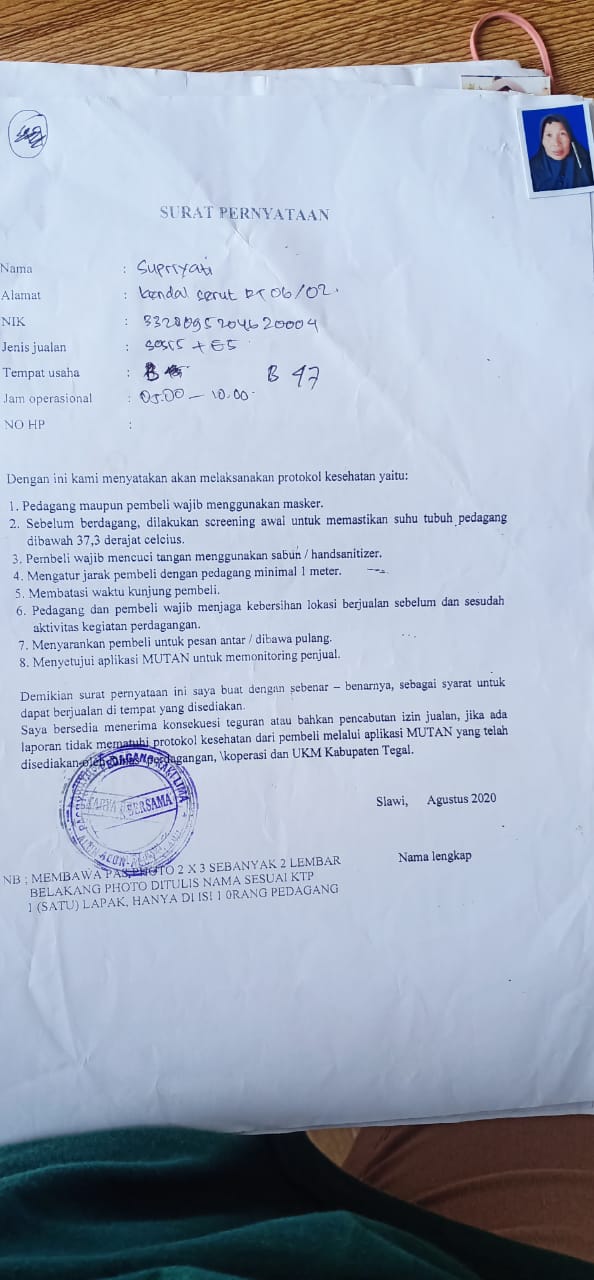 SURAT PERNYATAAN
Nama : Supriyati
Alamat : kendal serut RT 06/02.
NIK : 3328095204620004
Jenis jualan : sosis + ES
Tempat usaha : B 47
Jam operasional : 05.00 - 10.00
NO HP :
Dengan ini kami menyatakan akan melaksanakan protokol kesehatan yaitu:
1. Pedagang maupun pembeli wajib menggunakan masker.
2. Sebelum berdagang, dilakukan screening awal untuk memastikan suhu tubuh pedagang
dibawah 37,3 derajat celcius.
3. Pembeli wajib mencuci tangan menggunakan sabun / handsanitizer.
4. Mengatur jarak pembeli dengan pedagang minimal 1 meter.
5. Membatasi waktu kunjung pembeli.
6. Pedagang dan pembeli wajib menjaga kebersihan lokasi berjualan sebelum dan sesudah
aktivitas kegiatan perdagangan.
7. Menyarankan pembeli untuk pesan antar / dibawa pulang.
8. Menyetujui aplikasi MUTAN untuk memonitoring penjual.
Demikian surat pernyataan ini saya buat dengan sebenar – benarnya, sebagai syarat untuk
dapat berjualan di tempat yang disediakan.
Saya bersedia menerima konsekuesi teguran atau bahkan pencabutan izin jualan, jika ada
laporan tidak mematuhi protokol kesehatan dari pembeli melalui aplikasi MUTAN yang telah
disediakan perdagangan, \koperasi dan UKM Kabupaten Tegal.
PAGUYUBAN PEDAGANG KAKI LIMA
KARYA BERSAMA
ALUN-ALUN
Slawi, Agustus 2020
Nama lengkap
NB : MEMBAWA PAS PHOTO 2 X 3 SEBANYAK 2 LEMBAR
BELAKANG PHOTO DITULIS NAMA SESUAI KTP
1 (SATU) LAPAK, HANYA DI ISI 1 0RANG PEDAGANG